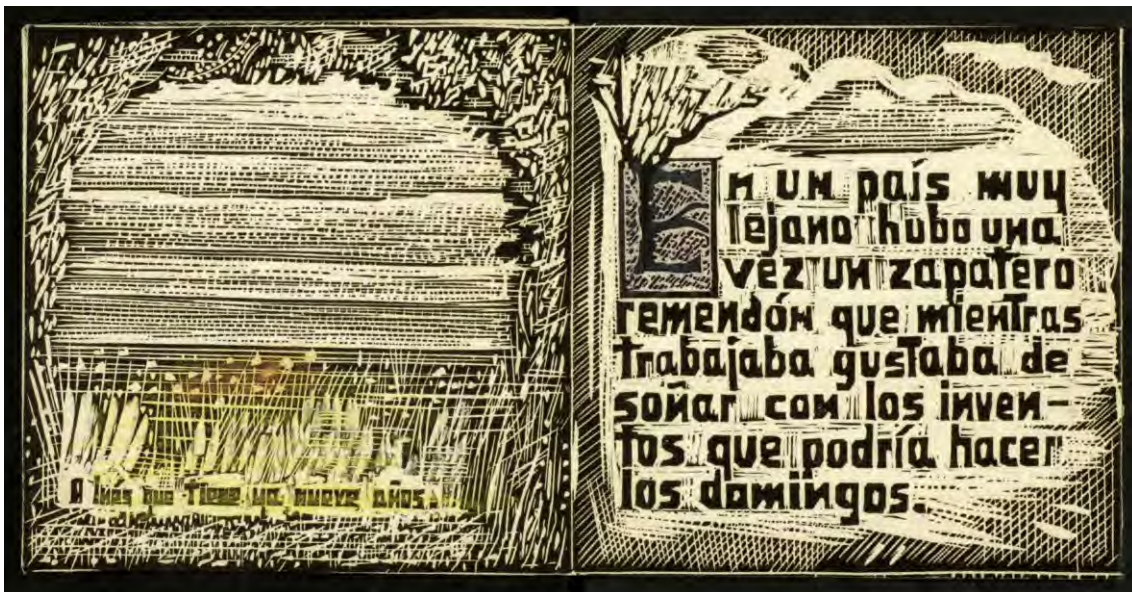 A Inés que tiene ya nueve años.
En un país muy
lejano hubo una
vez un zapatero
remendón que mientras
trabajaba gustaba de
soñar con los inven-
tos que podría hacer
los domingos.